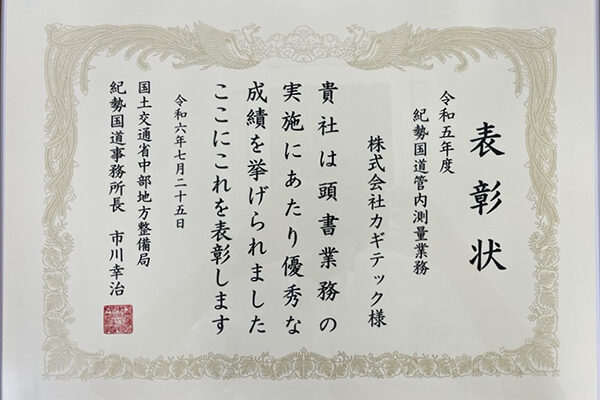 表彰状
令和五年度
紀勢国道管内測量業務
株式会社カギテック様
貴社は頭書業務の
実施にあたり優秀な
成績を挙げられました
ここにこれを表彰します
令和六年七月二十五日
国土交通省中部地方整備局
紀勢国道事務所長 市川幸治